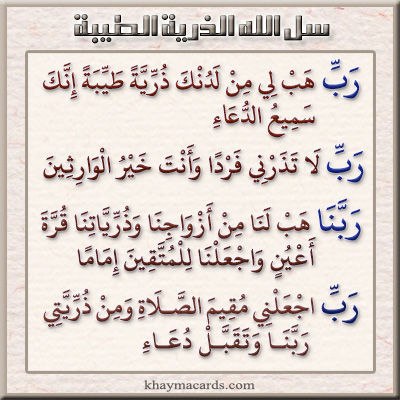 سل الله الذرية الطيبة
رَبِّ هَبْ لِي مِنْ لَدُنْكَ ذُرِّيَّةً طَيِّبَةً إِنَّكَ
سَمِيعُ الدُّعَاءِ
رَبِّ لَا تَذَرْنِي فَرْدًا وَأَنْتَ خَيْرُ الْوَارِثِينَ
رَبَّنَا هَبْ لَنَا مِنْ أَزْوَاجِنَا وَذُرِّيَّاتِنَا قُرَّةَ
أَعْيُنٍ وَاجْعَلْنَا لِلْمُتَّقِينَ إِمَامًا
رَبِّ اجْعَلْنِي مُقِيمَ الصَّلَاةِ وَمِنْ ذُرِّيَّتِي
رَبَّنَا وَتَقَبَّلْ دُعَاءِ
khaymacards.com